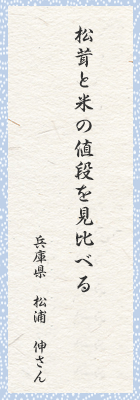 松茸と米の値段を見比べる
兵庫県 松浦 伸さん